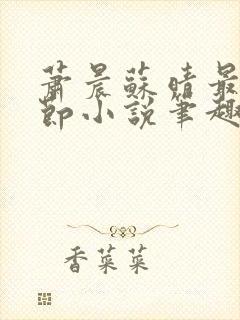 蕭晨蘇晴最
節小說筆趣
香菜菜